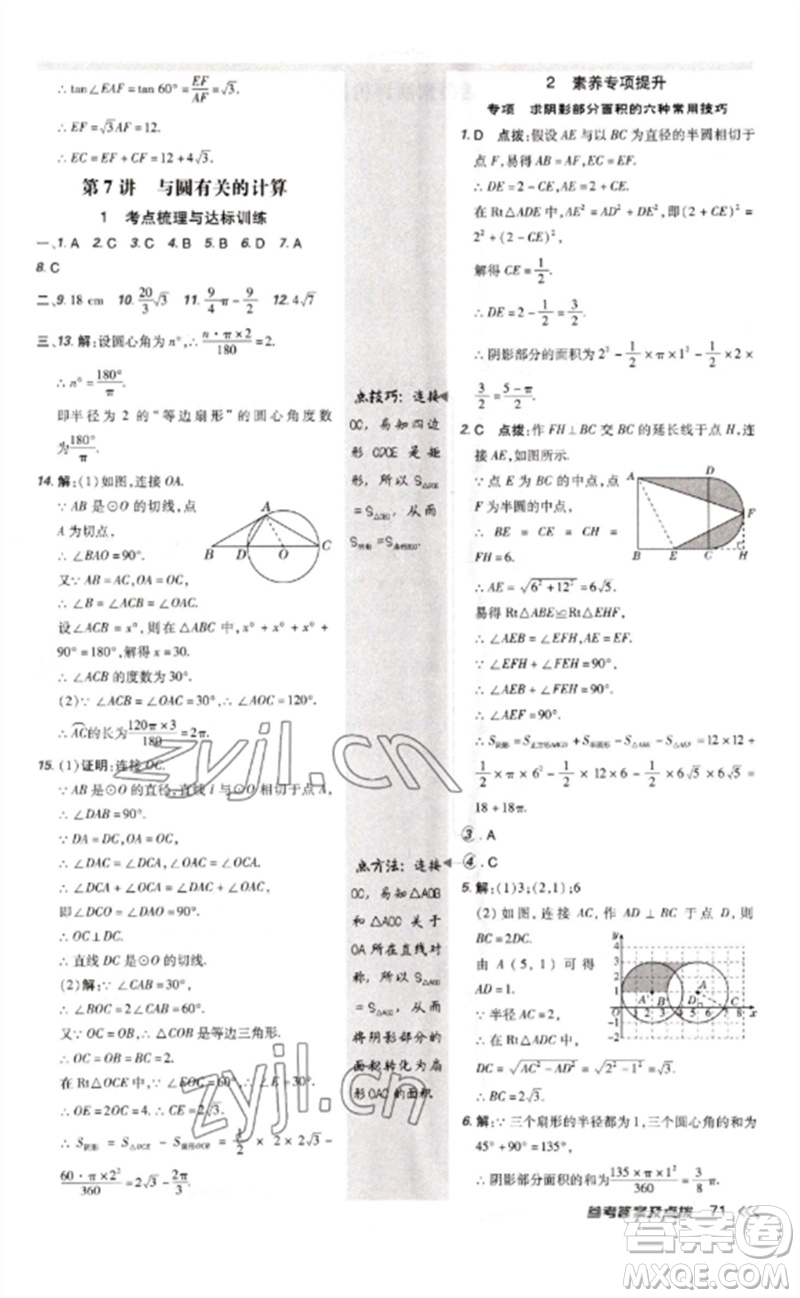 ∴ tan∠EAF = tan 60° = EF/AF = √3.
∴ EF = √3AF = 12.
∴ EC = EF + CF = 12 + 4√3.
第 7 讲 与圆有关的计算
1 考点梳理与达标训练
一、1. A 2. C 3. C 4. B 5. A 6. D 7. A
8. C
二、9. 18 cm 10. 20/3 √3 11. 9/4 π − 9/2 12. 4√7
三、13. 解:设圆心角为 n°,∴ n·π×2/180 = 2.
∴ n° = 180°/π.
即半径为 2 的“等边扇形”的圆心角度数
为 180°/π.
14. 解:(1)如图,连接 OA.
∵ AB 是⊙O 的切线,点
A 为切点,
∴ ∠BAO = 90°.
又∵ AB = AC,OA = OC,
∴ ∠B = ∠ACB = ∠OAC.
设∠ACB = x°,则在△ABC 中,x° + x° + x° +
90° = 180°,解得 x = 30.
∴ ∠ACB 的度数为 30°.
(2)∵ ∠ACB = ∠OAC = 30°,∴ ∠AOC = 120°.
∴ AC的长为 120π×3/180 = 2π.
15. (1)证明:连接 OC.
∵ AB 是⊙O 的直径,直线 l 与⊙O 相切于点 A,
∴ ∠DAB = 90°.
∵ DA = DC,OA = OC,
∴ ∠DAC = ∠DCA,∠OAC = ∠OCA.
∴ ∠DCA + ∠ACO = ∠DAC + ∠CAO,
即∠DCO = ∠DAO = 90°.
∴ OC⊥DC.
∴ 直线 DC 是⊙O 的切线.
(2)解:∵ ∠CAB = 30°,
∴ ∠BOC = 2∠CAB = 60°.
又∵ OC = OB,∴ △COB 是等边三角形.
∴ OC = OB = BC = 2.
在 Rt△OCE 中,∵ ∠CEO = 30°,
∴ OE = 2OC = 4. ∴ CE = 2√3.
∴ S阴影 = S△OCE − S扇形OBC = 1/2 × 2 × 2√3 −
60·π×2²/360 = 2√3 − 2π/3.
点技巧：连接
OC，易知四边
形 CDOE 是矩
形，所以 S△DOE
= S△DEC，从而
点方法：连接
OC，易知△AOB
和△AOC 关于
OA 所在直线对
称，所以 S△AOC
从而
将阴影部分的
面积转化为扇
形OAC的面积
2 素养专项提升
专项 求阴影部分面积的六种常用技巧
1. D 点拨:假设 AE 与以 BC 为直径的半圆相切于
点 F,易得 AF = AB = 2,EF = CE.
∴ DE = 2 − CE,AE = 2 + CE.
在 Rt△ADE 中,AE² = AD² + DE²,即(2 + CE)² =
2² + (2 − CE)²,
解得 CE = 1/2.
∴ DE = 2 − 1/2 = 3/2.
∴ 阴影部分的面积为 2² − 1/2 × π × 1² − 1/2 × 2 ×
3/2 = (5−π)/2.
2. C 点拨:作 FH⊥BC 交 BC 的延长线于点 H,连
接 AE,如图所示.
∵ 点 E 为 BC 的中点,点
F 为半圆的中点,
∴ BE = CE = CH =
FH = 6.
∴ AE = √(6² + 12²) = 6√5.
易得 Rt△ABE≌Rt△EHF.
∴ ∠AEB = ∠EFH,AE = EF.
∵ ∠EFH + ∠FEH = 90°,
∴ ∠AEB + ∠FEH = 90°.
∴ ∠AEF = 90°.
∴ S阴影 = S正方形ABCD + S半圆形 − S△ABE − S△AEF = 12 × 12 +
1/2 × π × 6² − 1/2 × 12 × 6 − 1/2 × 6√5 × 6√5 =
18 + 18π.
③. A
④. C
5. 解:(1)3;(2,1);6
(2) 如图,连接 AC,作 AD⊥BC 于点 D,则
BC = 2DC.
由 A (5, 1) 可得
AD = 1.
∵ 半径 AC = 2,
∴ 在 Rt△ADC 中,
DC = √(AC² − AD²) = √(2² − 1²) = √3.
∴ BC = 2√3.
6. 解:∵ 三个扇形的半径都为 1,三个圆心角的和为
45° + 90° = 135°,
∴ 阴影部分面积的和为 135×π×1²/360 = 3/8 π.
参考答案及点拨 71
zyjl.cn
zyjl.cn
答案圈
MXQE.COM